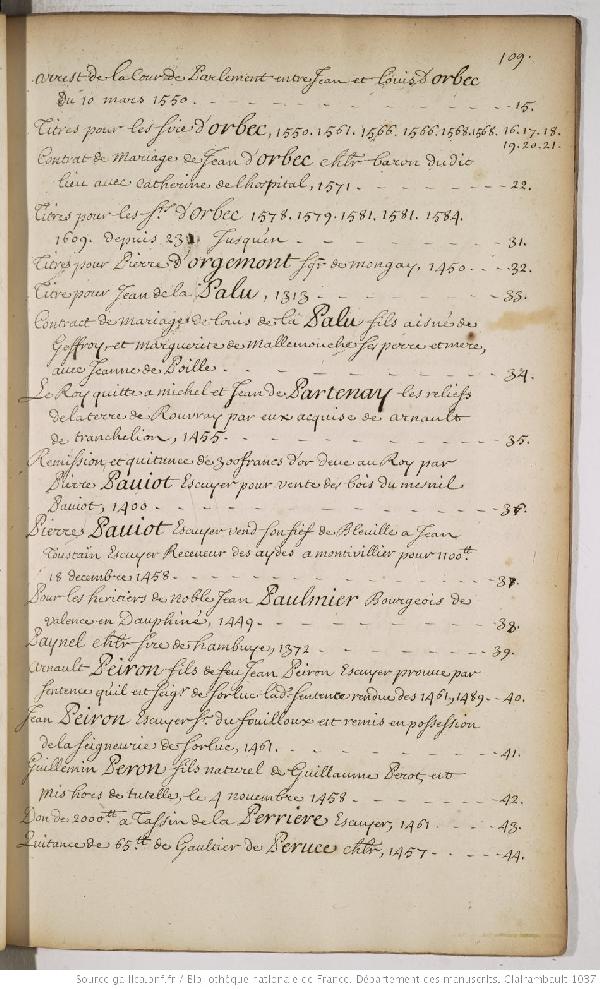 109.
Arrest de la Cour de Parlement entre Jean et Louis d'orbec
du 10 mars 1550. - - - - - 15.
Titres pour les sire d'orbec, 1550. 1561. 1566. 1566. 1568. 1568. 16. 17. 18.
19. 20. 21.
Contrat de Mariage de Jean d'orbec chlr baron dudit
lieu avec Catherine de lhospital, 1571. - - - - 22.
Titres pour les Srs d'Orbec 1578. 1579. 1581. 1581. 1584.
1609. depuis 23. Jusqu'en - - - - 31.
Titres pour Pierre d'orgemont sgr de mongay, 1450. - - - 32.
Titre pour Jean de la Palu, 1313 - - - - 33.
Contract de mariage de Louis de la Palu fils aisné de
Geoffroy, et marguerite de Mallemouche ses perre et mere,
avec Jeanne de Poille - - - - 34.
Le Roy quitte a michel et Jean de Partenay les reliefs
de la terre de Rouvray par eux acquise de arnault
de tranchelion, 1455 - - - - 35.
Remission et quitance de 300 francs d'or deue au Roy par
Pierre Paviot Escuyer pour vente des bois du mesnil
Paviot, 1400 - - - - 36.
Pierre Paviot Escuyer vend son fief de Bleuille a Jean
Toustain Escuyer Receveur des aydes a montivillier pour 1100tt
18 decembre 1458 - - - - 37.
Pour les heritiers de noble Jean Paulmier Bourgeois de
valence en Dauphiné, 1449 - - - - 38.
Paynel chlr sire de hambuye, 1372 - - - - 39.
Arnault Peiron fils de feu Jean Peiron Escuyer prouve par
sentence quil est seigr de sorluc lade sentence rendue des 1461, 1489 - - 40.
Jean Peiron Escuyer Sr du fouilloux est remis en possession
de la seigneurie de sorluc, 1461. - - - - 41.
Guillemin Peron fils naturel de Guillaume Perot, est
mis hors de tutelle, le 4 novembre 1458 - - - - 42.
Don de 2000tt a Tassin de la Perriere Escuyer, 1461 - - - - 43.
Quitance de 65tt de Gaultier de Perucc chlr, 1457 - - - - 44.
Source gallica.bnf.fr / Bibliothèque nationale de France. Département des manuscrits. Clairambault 1037